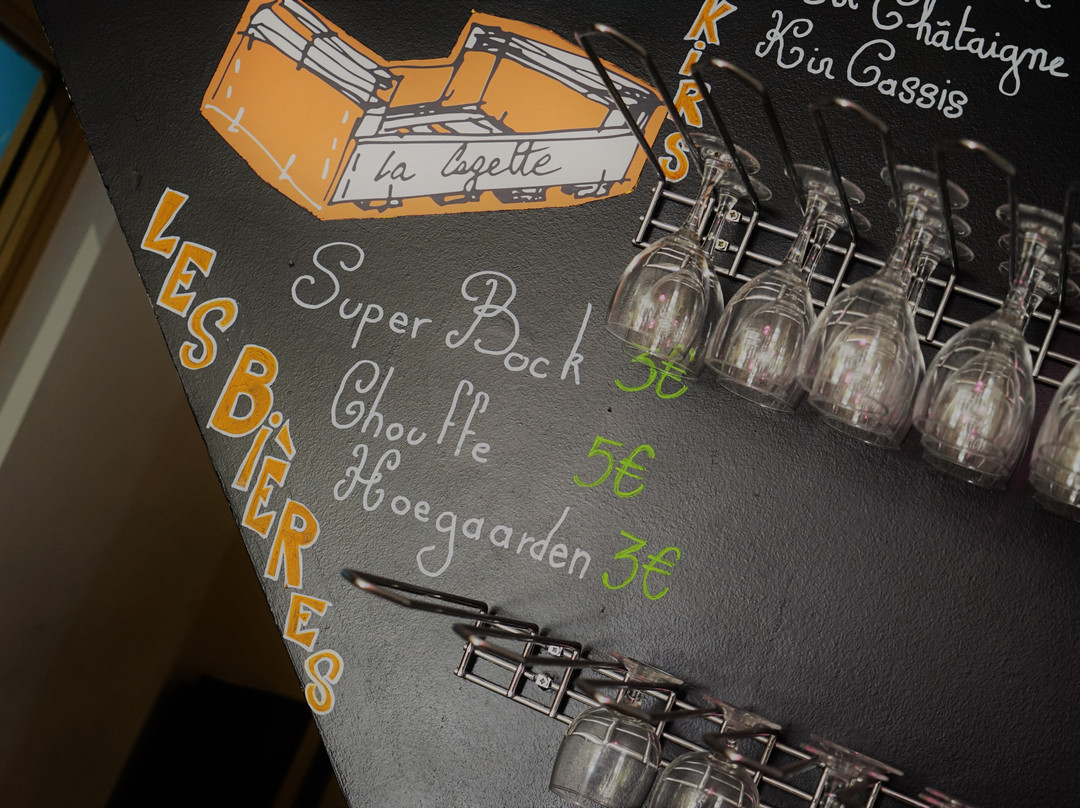 KiRS
Châtaigne
Kir Cassis
La Cagette
LES BiÈRES
Super Bock 3€
Chouffe 5€
Hoegaarden 3€